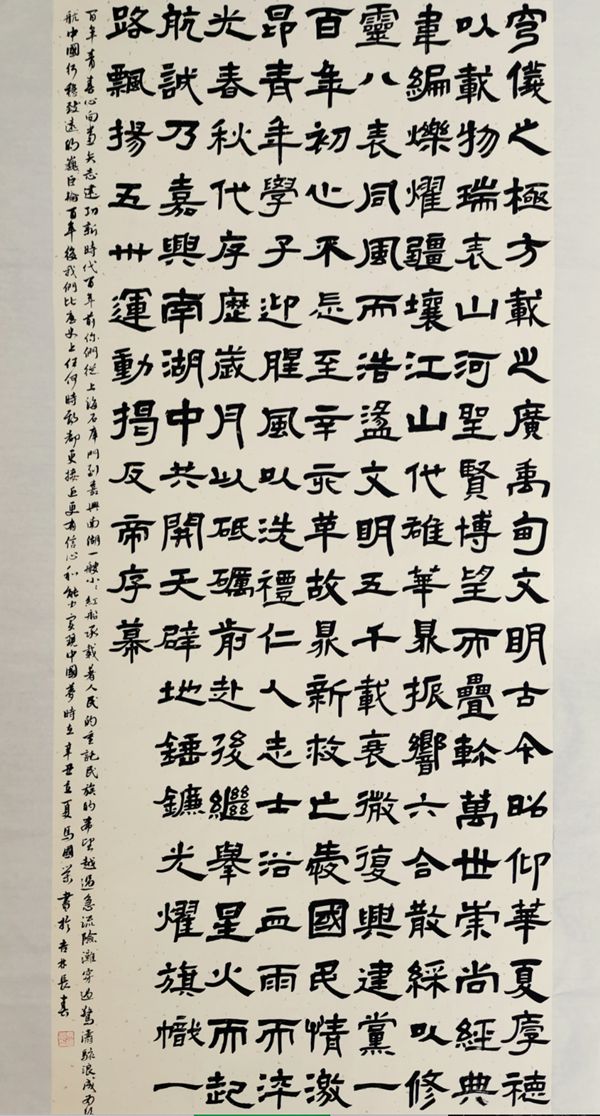 穹儀之極方載之廣禹甸文明古今昭仰華夏厚德
以載物瑞表山河聖賢博望而疊軫萬世崇尚經典
韋編爍耀疆壤江山代雄華鼎振響六合散綵以修
靈八表同風而浩盪文明五千載衰微復興建黨一
百年初心不忘至辛亥革故鼎新救亡發國民情激
昂青年學子迎腥風以洗禮仁人志士浴血雨而淬
光春秋代序歷歲月以砥礪前赴後繼舉星火而起
航誠乃嘉興南湖中共開天辟地錘鐮光耀旗幟一
路飄揚五卅運動揭反帝序幕
百年青春心向黨矢志建功新時代百年前你們從上海石庫門到嘉興南湖一艘小小紅船承載着人民的重託民族的希望越過急流險灘穿過驚濤駭浪成為領
航中國行穩致遠的巍巍巨輪百年後我們比歷史上任何時期都更接近更有信心和能力實現中國夢時在辛丑立夏馬國榮書於吉林長春